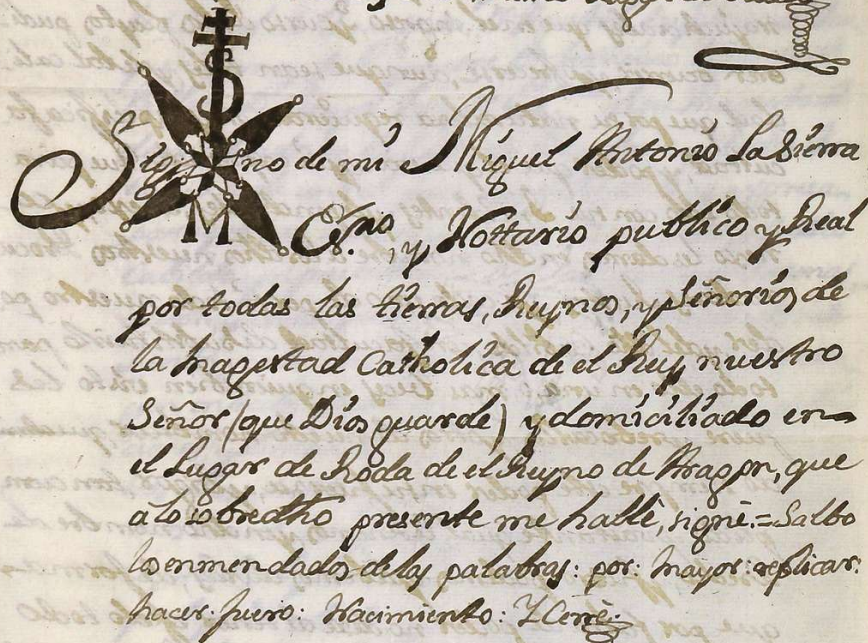 Sig no de mi Miguel Antonio La Sierra
Es.no, y Nottario publico y Real
por todas las tierras, Reynos, y Señorios de
la Magestad Catholica de el Rey nuestro
Señor (que Dios guarde) y domiciliado en
el Lugar de Roda de el Reyno de Aragon, que
a lo sobredho presente me hallè, signè.= Salbo
los enmendados de las palabras: por: Mayor: replicar:
hacer: fuero: Nacimiento: Y Cerrè.